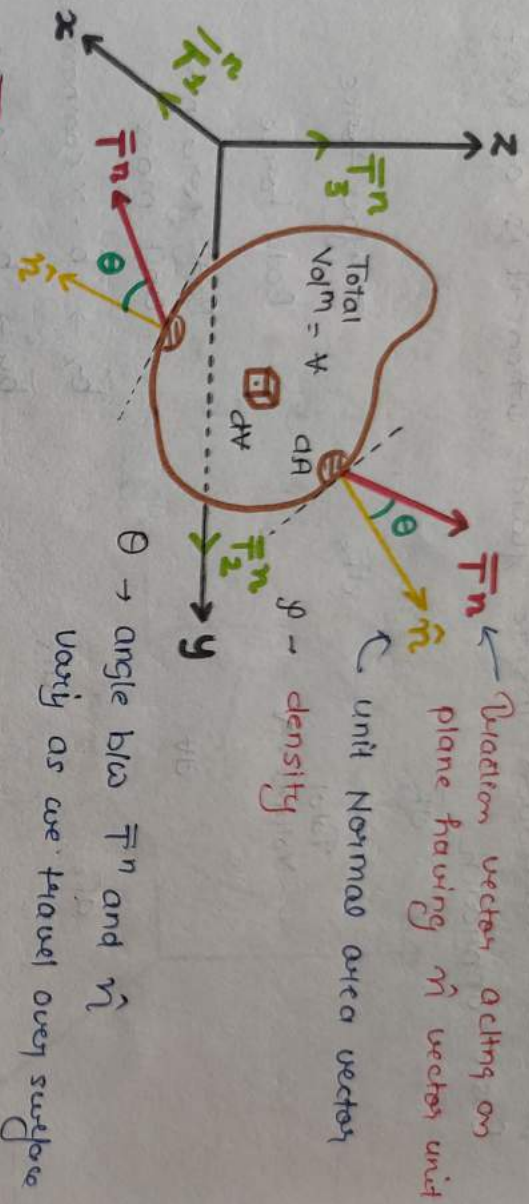 z
T̄ⁿ₃
T̄ⁿ₁
x
T̄ⁿ
θ
n̂
Total
Volᵐ = V
dV
dA
T̄ⁿ₂
y
θ
T̄ⁿ
n̂
Traction vector acting on
plane having n̂ vector unit
unit Normal area vector
ρ - density
θ → angle b/w T̄ⁿ and n̂
vary as we travel over surface